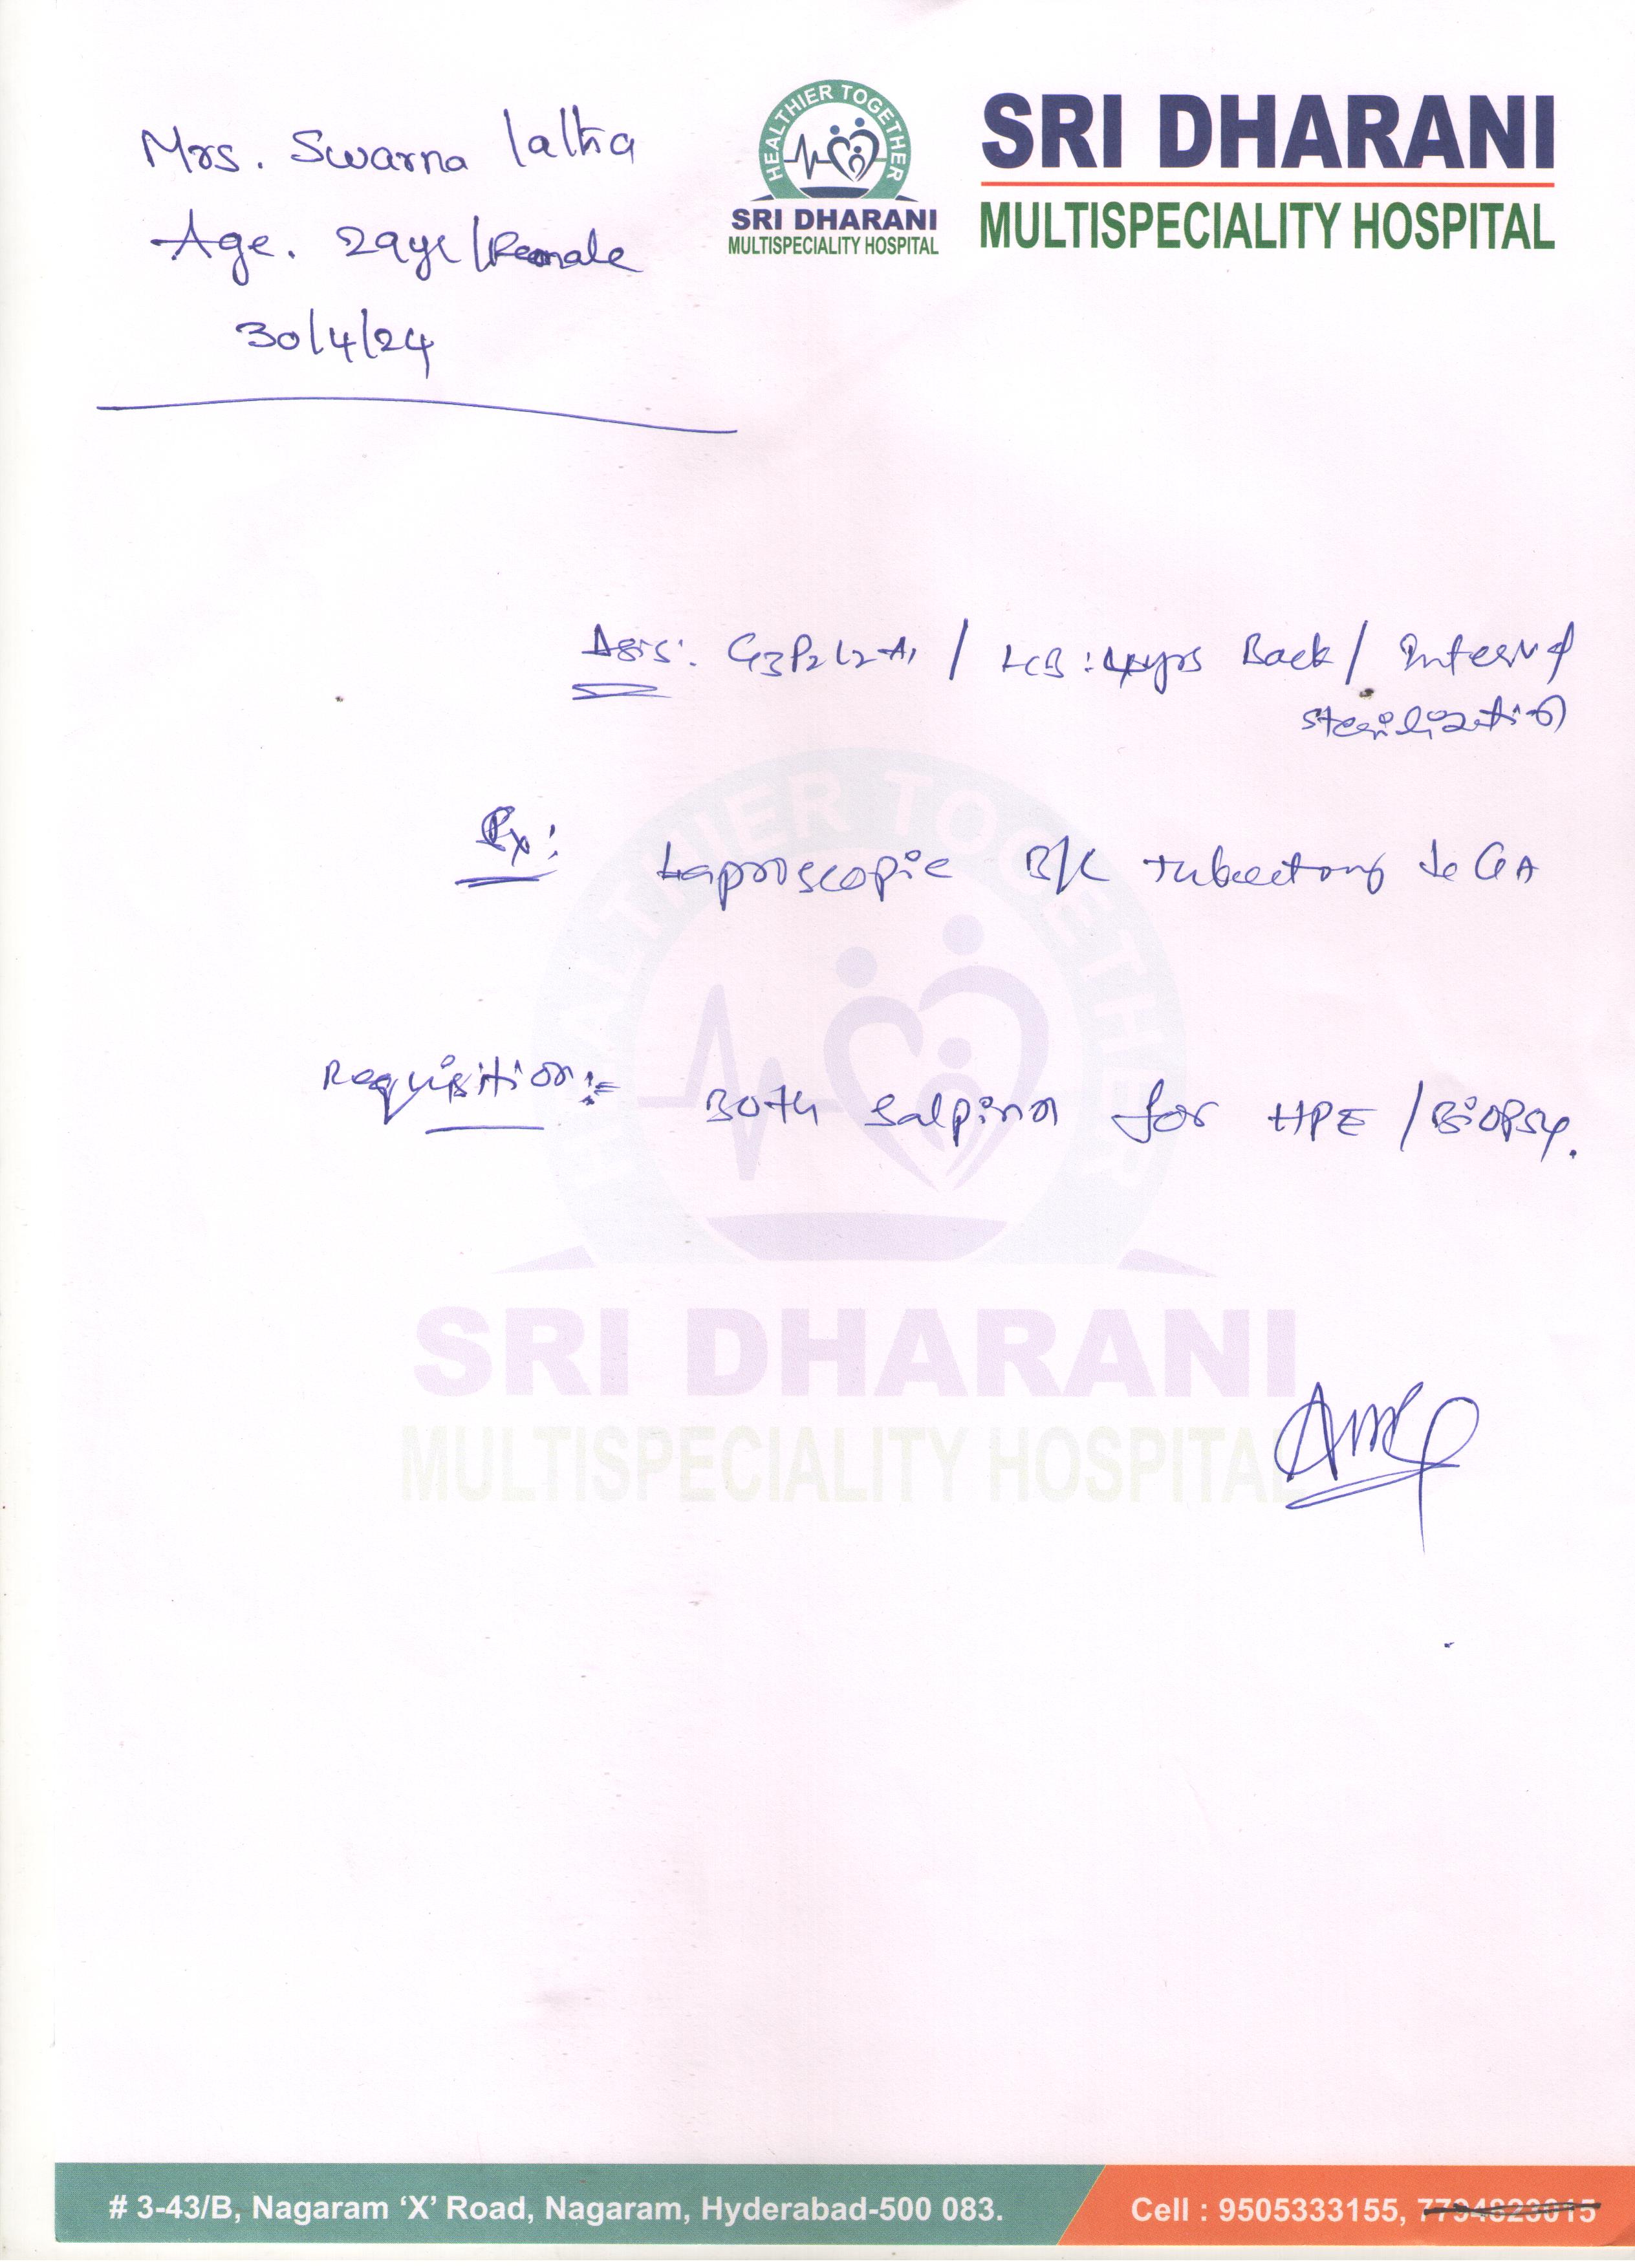 Mrs. Swarna latha
Age. 29yr/Female
30/4/24
HEALTHIER TOGETHER
SRI DHARANI
MULTISPECIALITY HOSPITAL
SRI DHARANI
MULTISPECIALITY HOSPITAL
G3P2L2A1 / LCB: 4yrs Back /
sterilization
Rx:
Laproscopic B/L tubectomy GA
Requisition:- Both for HPE / Biopsy.
HEALTHIER TOGETHER
SRI DHARANI
MULTISPECIALITY HOSPITAL
# 3-43/B, Nagaram ‘X’ Road, Nagaram, Hyderabad-500 083.
Cell : 9505333155, 7794823015